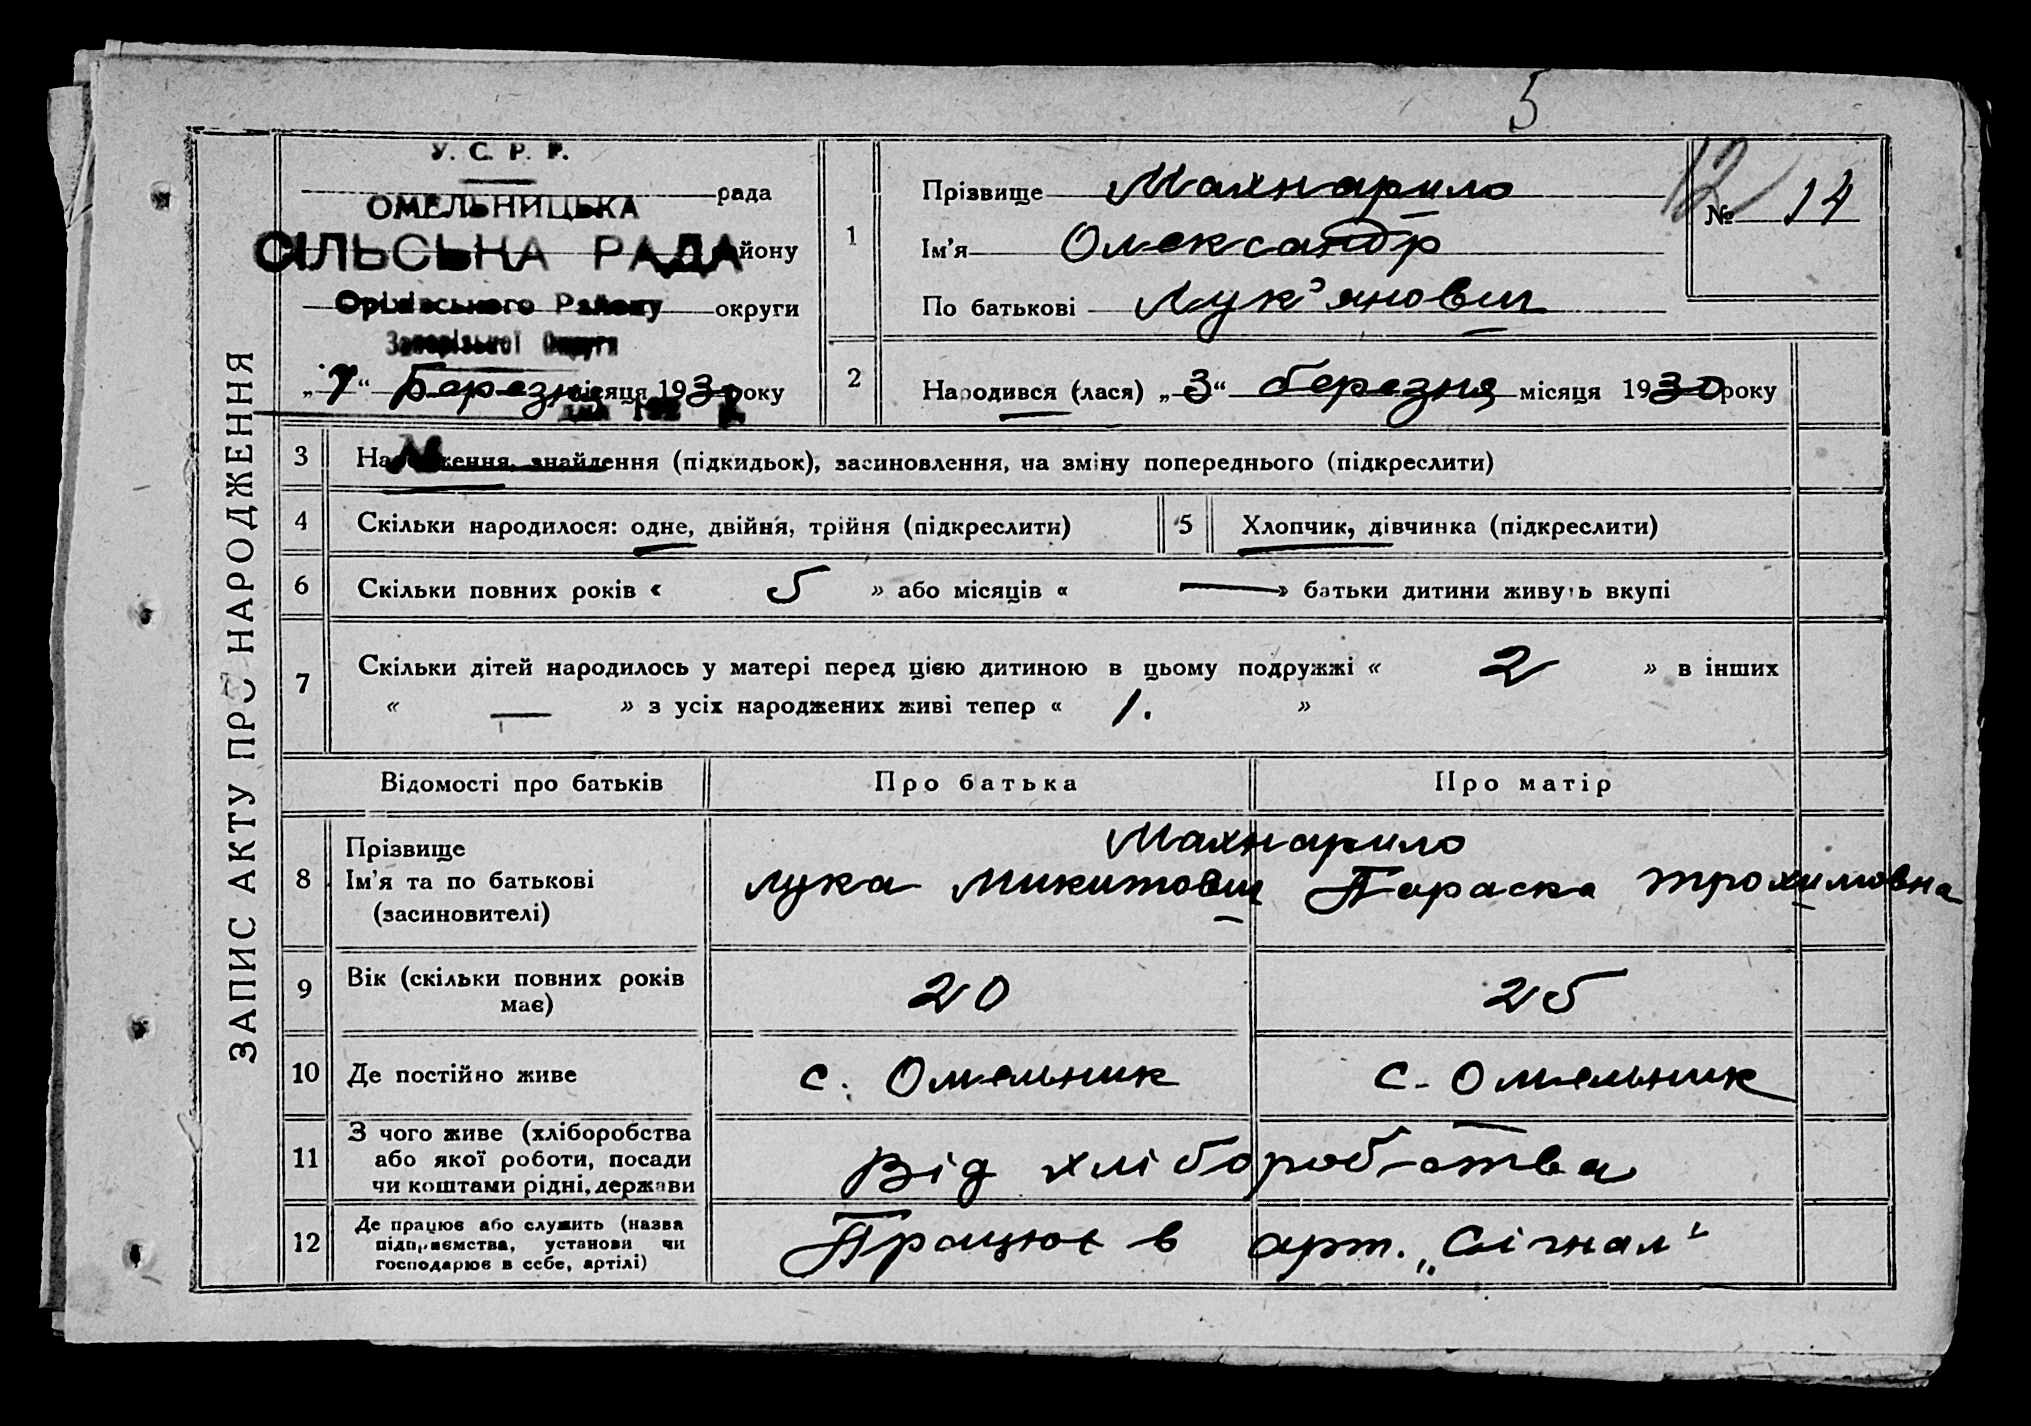 5
У. С. Р. Р.
рада
ОМЕЛЬНИЦЬКА
СІЛЬСЬКА РАДА
району
Оріхівського Району
округи
Запорізької Округи
„7“ Березня місяця 1930 року
1
Прізвище Махнарило
Ім’я Олександр
По батькові Лук’янович
12
№ 14
2
Народився (лася) „3“ березня місяця 1930 року
ЗАПИС АКТУ ПРО НАРОДЖЕННЯ
3 Народження, знайдення (підкидьок), засиновлення, на зміну попереднього (підкреслити)
4 Скільки народилося: одне, двійня, трійня (підкреслити)
5 Хлопчик, дівчинка (підкреслити)
6 Скільки повних років « 5 » або місяців « — » батьки дитини живуть вкупі
7 Скільки дітей народилось у матері перед цією дитиною в цьому подружжі « 2 » в інших
« — » з усіх народжених живі тепер « 1. »
Відомості про батьків
Про батька
Про матір
8 Прізвище
Ім’я та по батькові
(засиновителі)
Махнарило
Лука Микитович
Параска Трохимовна
9 Вік (скільки повних років
має)
20
25
10 Де постійно живе
с. Омельник
с. Омельник
11 З чого живе (хліборобства
або якої роботи, посади
чи коштами рідні, держави
Від хліборобства
12 Де працює або служить (назва
підприємства, установи чи
господарює в себе, артілі)
Працює в арт. „Сігнал“